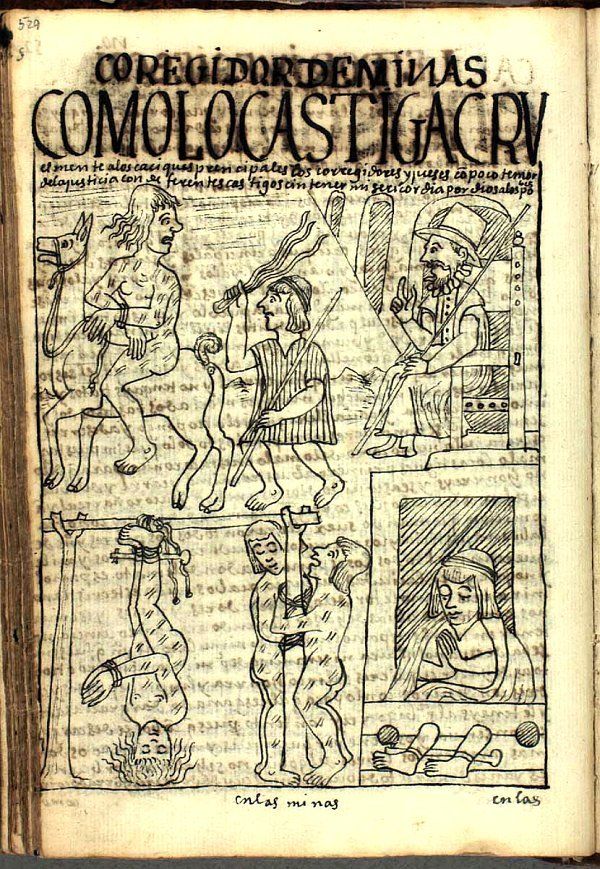 529
COREGIDOR DE MINAS
COMOLOCASTIGACRV
elmente alos caciques prencipales los corregidores y jueses co poco temor
dela justicia con deferentes castigos cin tener misericordia por dios a los pos
en las minas
en las